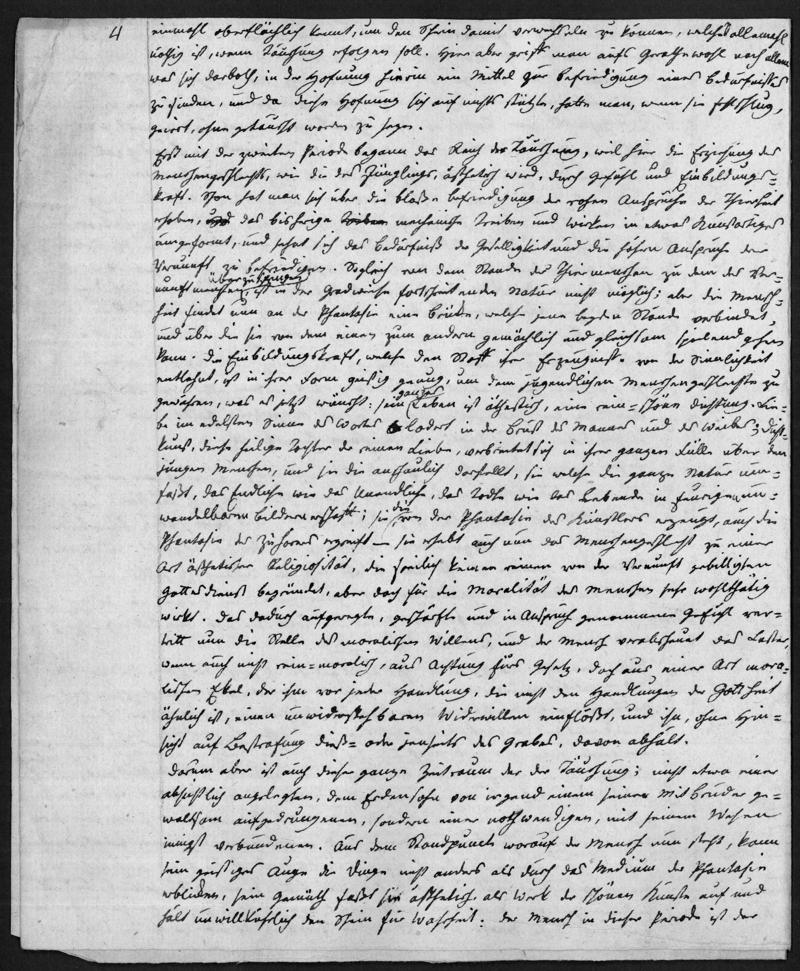 4
einmahl oberflächlich kennt, um den Schein damit verwechseln zu können, welches allemahl
nöthig ist, wenn Täuschung erfolgen soll. Hier aber griff man aufs Gerathewohl nach allem
was sich darboth, in der Hofnung hierin ein Mittel zur Befriedigung eines Bedürfnißes
zu finden, und da diese Hofnung sich auf nichts stützte, hatte man, wenn sie fehlschlug,
geirrt, ohne getäuscht worden zu seyn.
Erst mit der zweiten Periode begann das Reich der Täuschung, weil hier die Erziehung des
Menschengeschlechts, wie die des Jünglings, ästhetisch wird, durch Gefühl und Einbildungs=
kraft. Schon hat man sich über die bloße Befriedigung der rohen Ansprüche der Thierheit
erhoben, und das bisherige Treiben mechanische Treiben und Wirken in etwas Kunstartiges
umgeformt, und sehnt sich das Bedürfniß der Geselligkeit und die höhern Ansprüche der
Vernunft zu befriedigen. Sogleich von dem Stande des Thiermenschen zu dem des Ver=
nunftmenschen überzuspringen ist in der gradweise fortschreitenden Natur nicht möglich; aber die Mensch=
heit findet nun an der Phantasie eine Brücke, welche jene beyden Stände verbindet,
und über die sie von dem einen zum andern gemächlich und gleichsam spielend gehen
kann. Die Einbildungskraft, welche den Stoff ihrer Erzeugniße von der Sinnlichkeit
entlehnt, ist in ihrer Form geistig genug, um dem jugendlichen Menschengeschlechte zu
gewähren, was es jetzt wünscht: sein ganzes Leben ist ästhetisch, eine rein=schöne Dichtung. Lie=
be im edelsten Sinne des Wortes lodert in der Brust des Mannes und des Weibes; Dicht=
kunst, diese heilige Tochter der reinen Liebe, verbreitet sich in ihrer ganzen Fülle über den
jungen Menschen, und sie die anschaulich darstellt, sie welche die ganze Natur um=
faßt, das Endliche wie das Unendliche, das Todte wie das Lebende in feurigen un=
wandelbaren Bildern erschafft; sie die von der Phantasie des Künstlers erzeugt, auch die
Phantasie des Zuhörers ergreift – sie erhebt auch nun das Menschengeschlecht zu einer
Art ästhetischer Religiosität, die freilich keinen reinen von der Vernunft gebilligten
Gottesdienst begründet, aber doch für die Moralität des Menschen sehr wohlthätig
wirkt. Das dadurch aufgeregte, geschärfte und in Anspruch genommene Gefühl ver=
tritt nun die Stelle des moralischen Willens, und der Mensch verabscheuet das Laster,
wenn auch nicht rein=moralisch, aus Achtung fürs Gesetz, doch aus einer Art mora=
lischen Ekel, der ihm vor jeder Handlung, die nicht den Handlungen der Gottheit
ähnlich ist, einen unwiderstehbaren Widerwillen einflößt, und ihn, ohne Hin=
sicht auf Bestrafung dieß= oder jenseits des Grabes, davon abhält.
Darum aber ist auch dieser ganze Zeitraum der der Täuschung; nicht etwa einer
absichtlich angelegten, dem Erdensohn von irgend einem seiner Mitbrüder ge=
waltsam aufgedrungenen, sondern einer nothwendigen, mit seinem Wesen
innigst verbundenen. Aus dem Standpunct worauf der Mensch nun steht, kann
sein geistiges Auge die Dinge nicht anders als durch das Medium der Phantasie
erblicken, sein Gemüth faßt sie ästhetisch, als Werk der schönen Künste auf und
hält unwillkührlich den Schein für Wahrheit: der Mensch in dieser Periode ist der